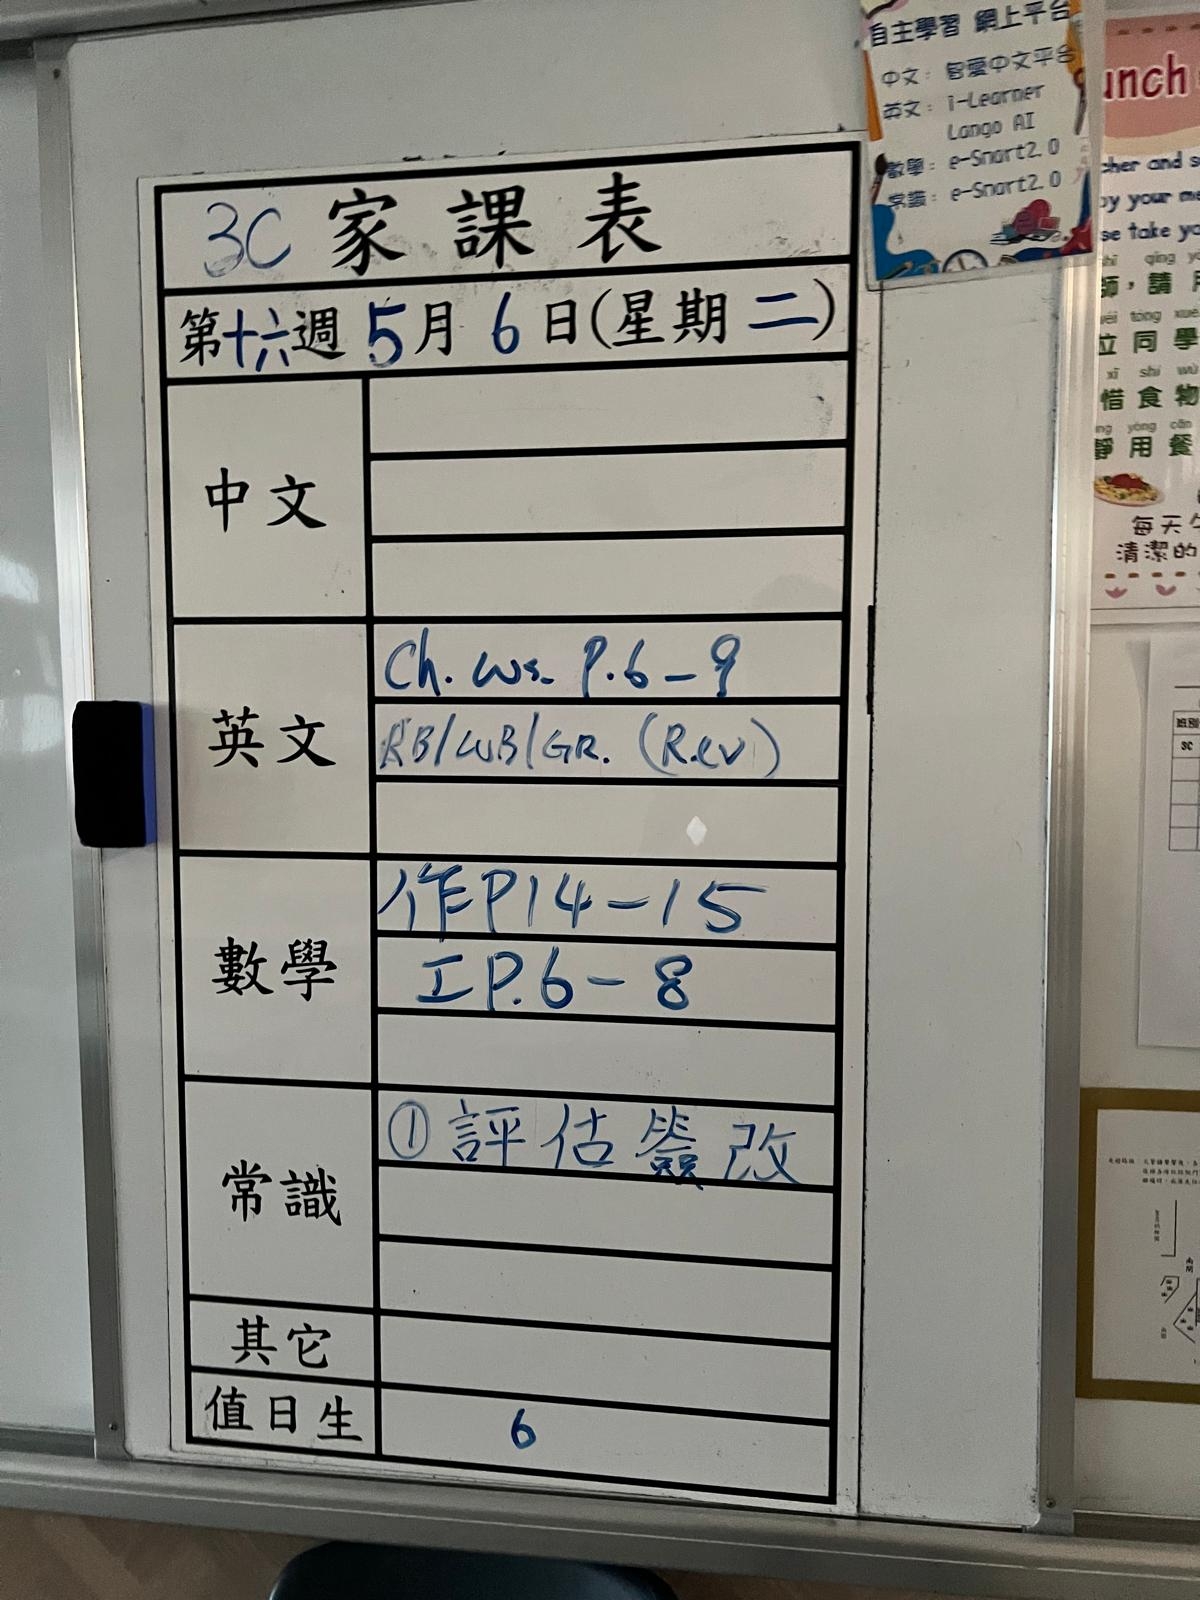 自主學習 網上平台
中文： 智愛中文平台
英文： i-Learner
Lango AI
數學： e-Smart2.0
常識： e-Smart2.0
3C 家課表
第十六週 5月 6日(星期二)
中文
英文
Ch. Ws. P.6-9
RB/WB/GR. (Rev)
數學
作P14-15
工P.6-8
常識
①評估簽改
其它
值日生
6
unch
by your me
se take yo
shī qǐng yo
師，請用
wèi tóng xué
位同學
xī shí wù
惜食物
yòng cān
靜用餐
每天午
清潔的
班別
3C